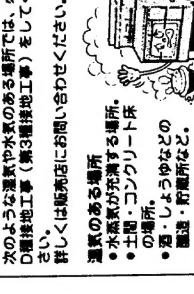 次のような湿気や水気のある場所では、
D種接地工事（第3種接地工事）をして
さい。
詳しくは販売店にお問い合わせください。
湿気のある場所
●水蒸気が充満する場所。
●土間・コンクリート床
の場所。
●酒・しょうゆなどの
醸造・貯蔵所など